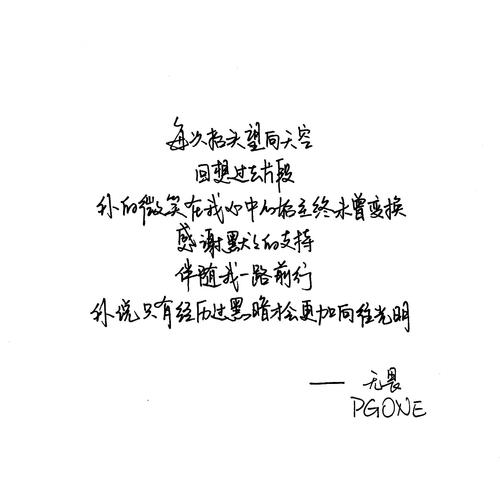 每次抬头望向天空
回想过去片段
你的微笑在我心中从始至终未曾变换
感谢默默的支持
伴随我一路前行
你说只有经历过黑暗才会更加向往光明
—— 无畏
PGONE